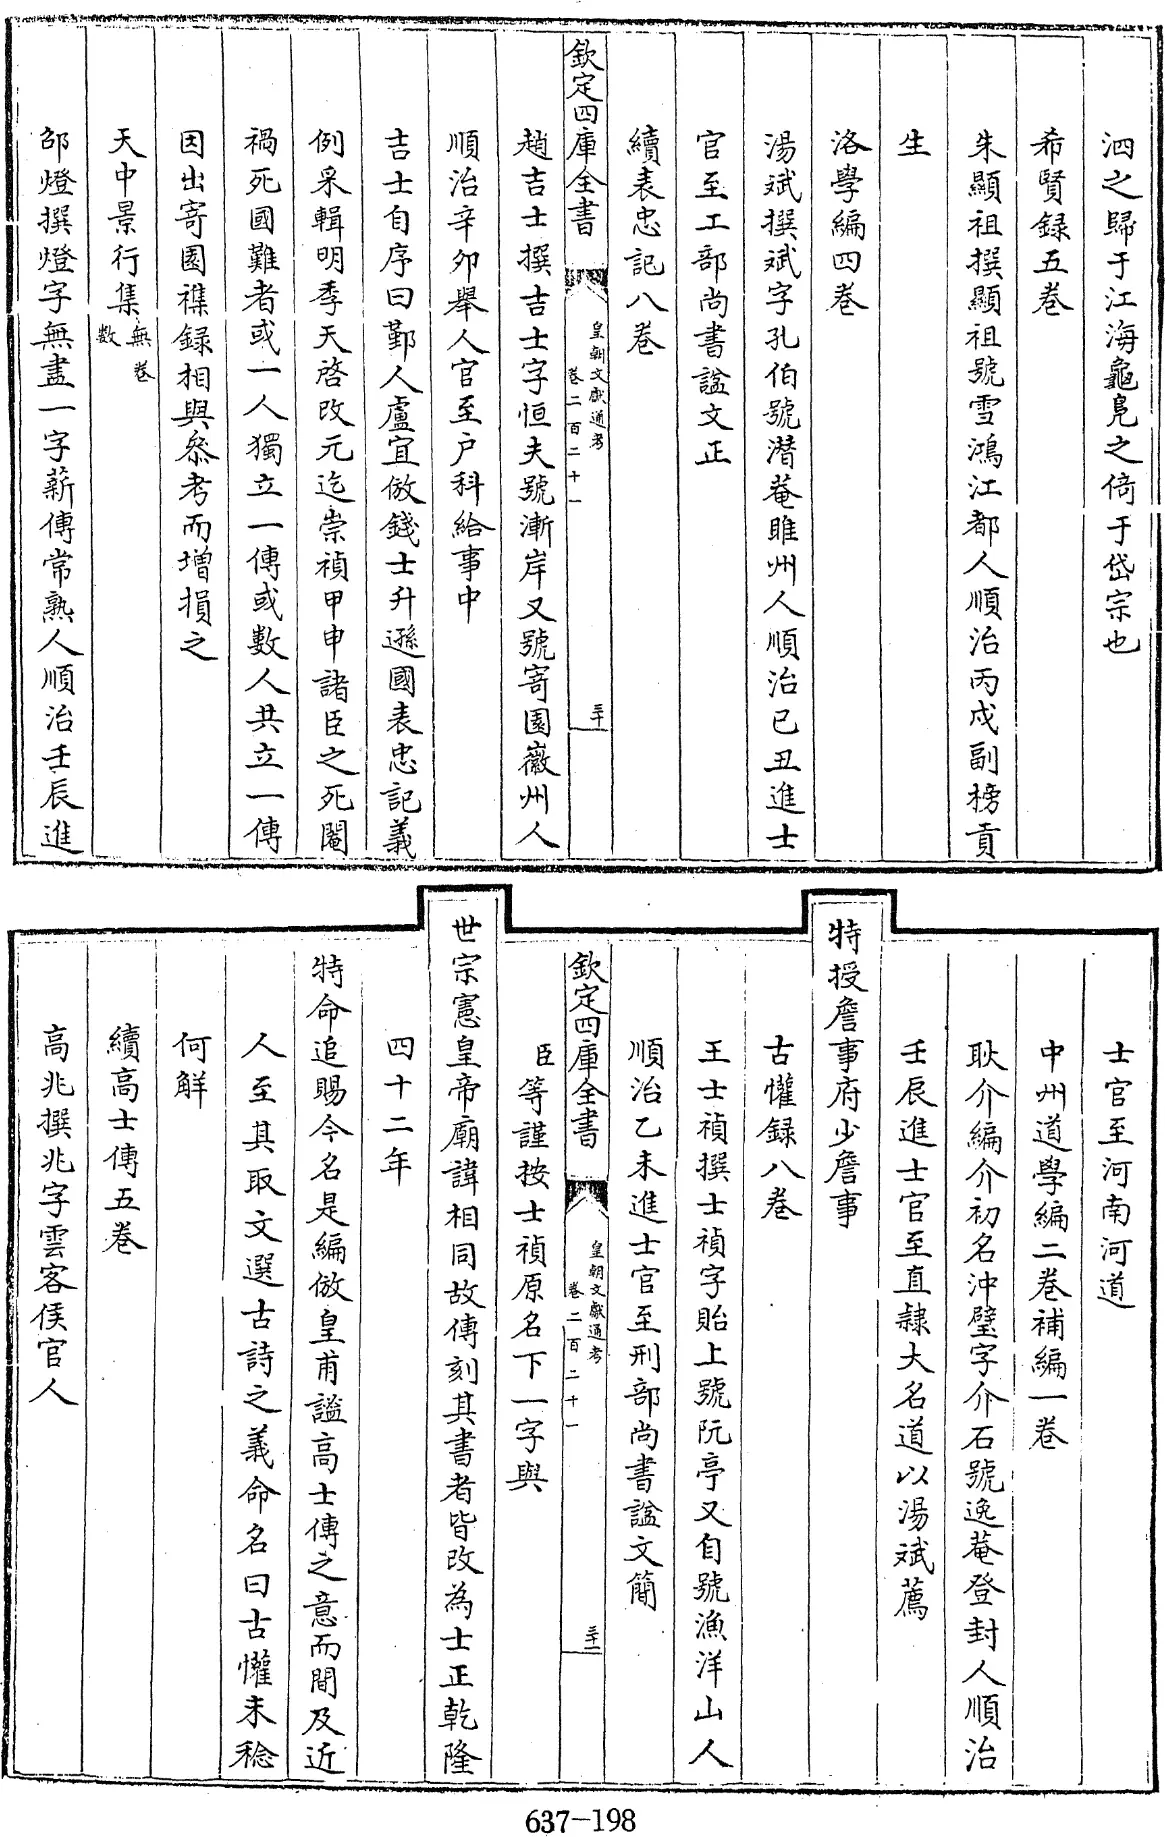 泗之歸于江海龜鳬之倚于岱宗也
希賢録五卷
朱顯祖撰顯祖號雪鴻江都人順治丙戌副榜貢
生
洛學編四卷
湯斌撰斌字孔伯號潜菴睢州人順治己丑進士
官至工部尚書諡文正
續表忠記八卷
欽定四庫全書
皇朝文獻通考
卷二百二十一
三十
趙吉士撰吉士字恒夫號漸岸又號寄園徽州人
順治辛卯舉人官至户科給事中
吉士自序曰鄞人盧宜倣錢士升遜國表忠記義
例采輯明季天啓改元迄崇禎甲申諸臣之死閹
禍死國難者或一人獨立一傳或數人共立一傳
因出寄園襍録相與叅考而增損之
天中景行集無卷數
邵燈撰燈字無盡一字薪傳常熟人順治壬辰進
士官至河南河道
中州道學編二卷補編一卷
耿介編介初名沖璧字介石號逸菴登封人順治
壬辰進士官至直隷大名道以湯斌薦
特授詹事府少詹事
古懽録八卷
王士禎撰士禎字貽上號阮亭又自號漁洋山人
順治乙未進士官至刑部尚書諡文簡
欽定四庫全書
皇朝文獻通考
卷二百二十一
三十一
臣等謹按士禎原名下一字與
世宗憲皇帝廟諱相同故傳刻其書者皆改為士正乾隆
四十二年
特命追賜今名是編倣皇甫謐高士傳之意而間及近
人至其取文選古詩之義命名曰古懽未稔
何解
續高士傳五卷
高兆撰兆字雲客侯官人
637-198